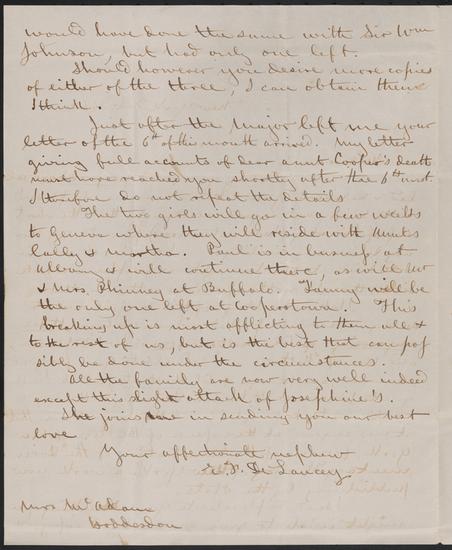 would have done the same with Sir Wm
Johnson, but had only one left.
Should however you desire more copies
of either of the three, I can obtain them
I think.
Just after the Major left me your
letter of the 6th of this month arrived. My letter
giving full accounts of dear aunt Cooper's death
must have reached you shortly after the 6th inst
I therefore do not repeat the details
The two girls will go in a few weeks
to Geneva where they will reside with Aunts
Cally & Martha. Paul is in business at
Albany & will continue there, as will Mr
& Mrs. Phinney at Buffalo. Fanny will be
the only one left at Cooperstown. This
breaking up is most afflicting to them all &
to the rest of us, but is the best that can pos
sibly be done under the circumstances.
All the family are now very well indeed
except this slight attack of Josephine's.
She joins me in sending you our best
love
Your affectionate nephew
E. F. De Lancey.
Mrs McAdam
Hoddesdon